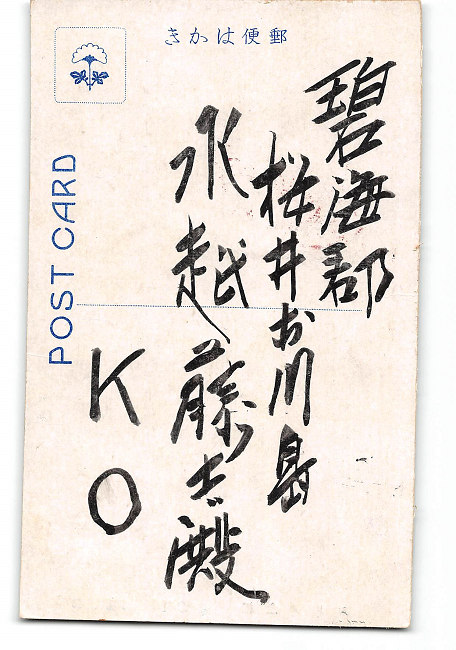 郵便はかき
碧海郡
桜井村川島
水越藤殿
K O
POST CARD